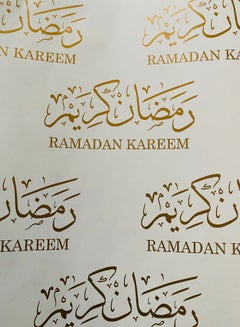 رمضان كريم
N KAREEM
رمضان كريم
RAMADAN
رمضان كريم
RAMADAN KAREEM
رمضان كريم
KAREEM
رمضان كريم
RAMADAN KA
رمضان كريم